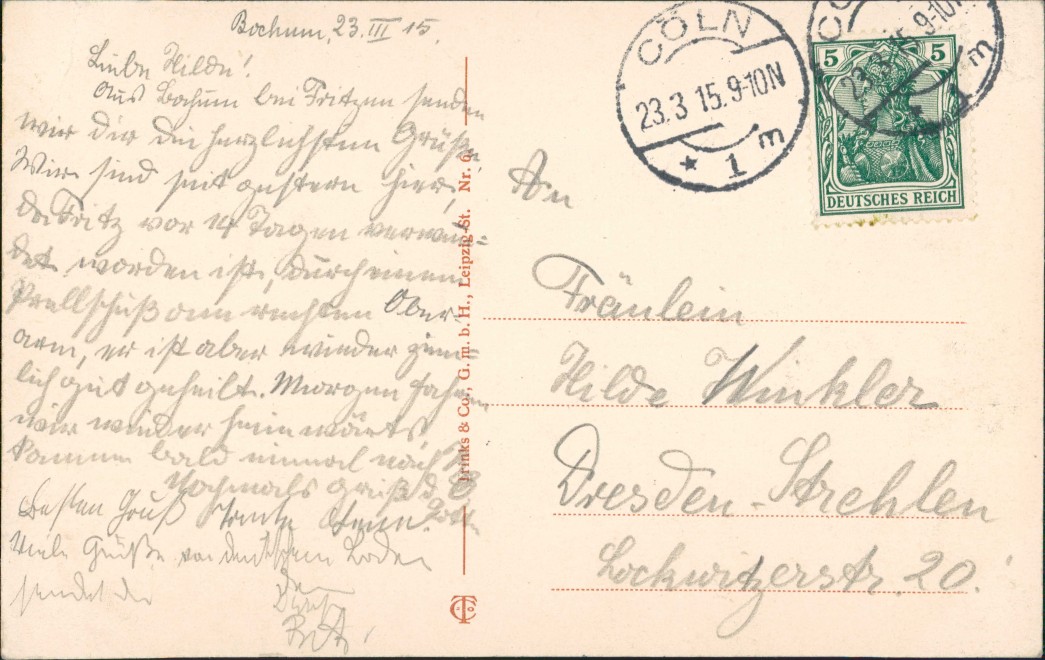 Bochum, 23. III 15.
Liebe Hilde!
Aus Bochum bei Fritzen senden
wir dir die herzlichsten Grüße.
Wir sind seit gestern hier,
da Fritz vor 14 Tagen verwun=
det worden ist, durch einen
Prellschuß am rechten Ober-
arm, er ist aber wieder ziem=
lich gut geheilt. Morgen fahren
wir wieder heimwärts,
kommen bald einmal nach
Nochmals Gruß d.
Besten Gruß Tante
Viele Grüße von deutschem Boden
sendet dir
dein
CÖLN
23.3 15. 9-10N
* 1 m
CÖLN
23.3 15. 9-10N
* 1 m
5 5
DEUTSCHES REICH
Trinks & Co., G. m. b. H., Leipzig-St. Nr. 6.
An
Fräulein
Hilde Winkler
Dresden-Strehlen
Lockwitzerstr. 20.